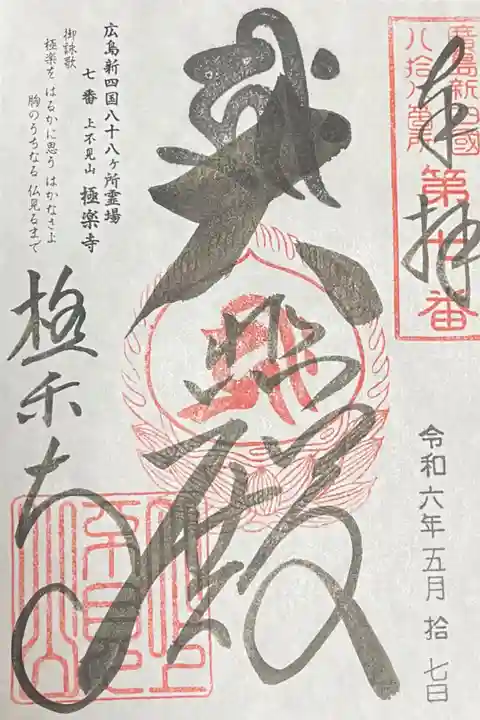 廣島新四國
八拾八箇所
第七番
奉拝
令和六年五月拾七日
大悲殿
広島新四国八十八ヶ所霊場
七番 上不見山 極楽寺
御詠歌
極楽を はるかに思う はかなさよ
胸のうちなる 仏見るまで
極楽寺